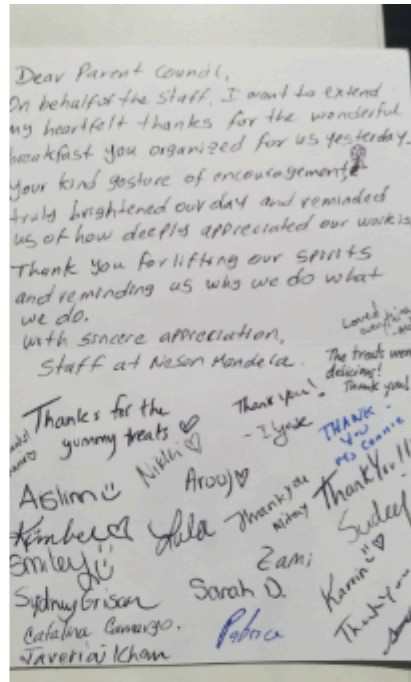 Dear Parent Council,
On behalf of the Staff, I want to extend
my heartfelt thanks for the wonderful
breakfast you organized for us yesterday.
Your kind gesture of encouragement
truly brightened our day and reminded
us of how deeply appreciated our work is.
Thank you for lifting our spirits
and reminding us why we do what
we do.
With sincere appreciation,
Staff at Nelson Mandela.
Loved
everything
The treats were
delicious!
Thank you!
Thanks for the
yummy treats
Thank you!
THANK
YOU
Ms Connie
Nikki
Arooj
Aislinn
Thank you
Thank You!!
Kimber
Lula
Sudeep
Smiley
Zami
Sarah D.
Karrin
Sydney Grison
Thank you
Catalina Camargo.
Patrice
Javeria Khan